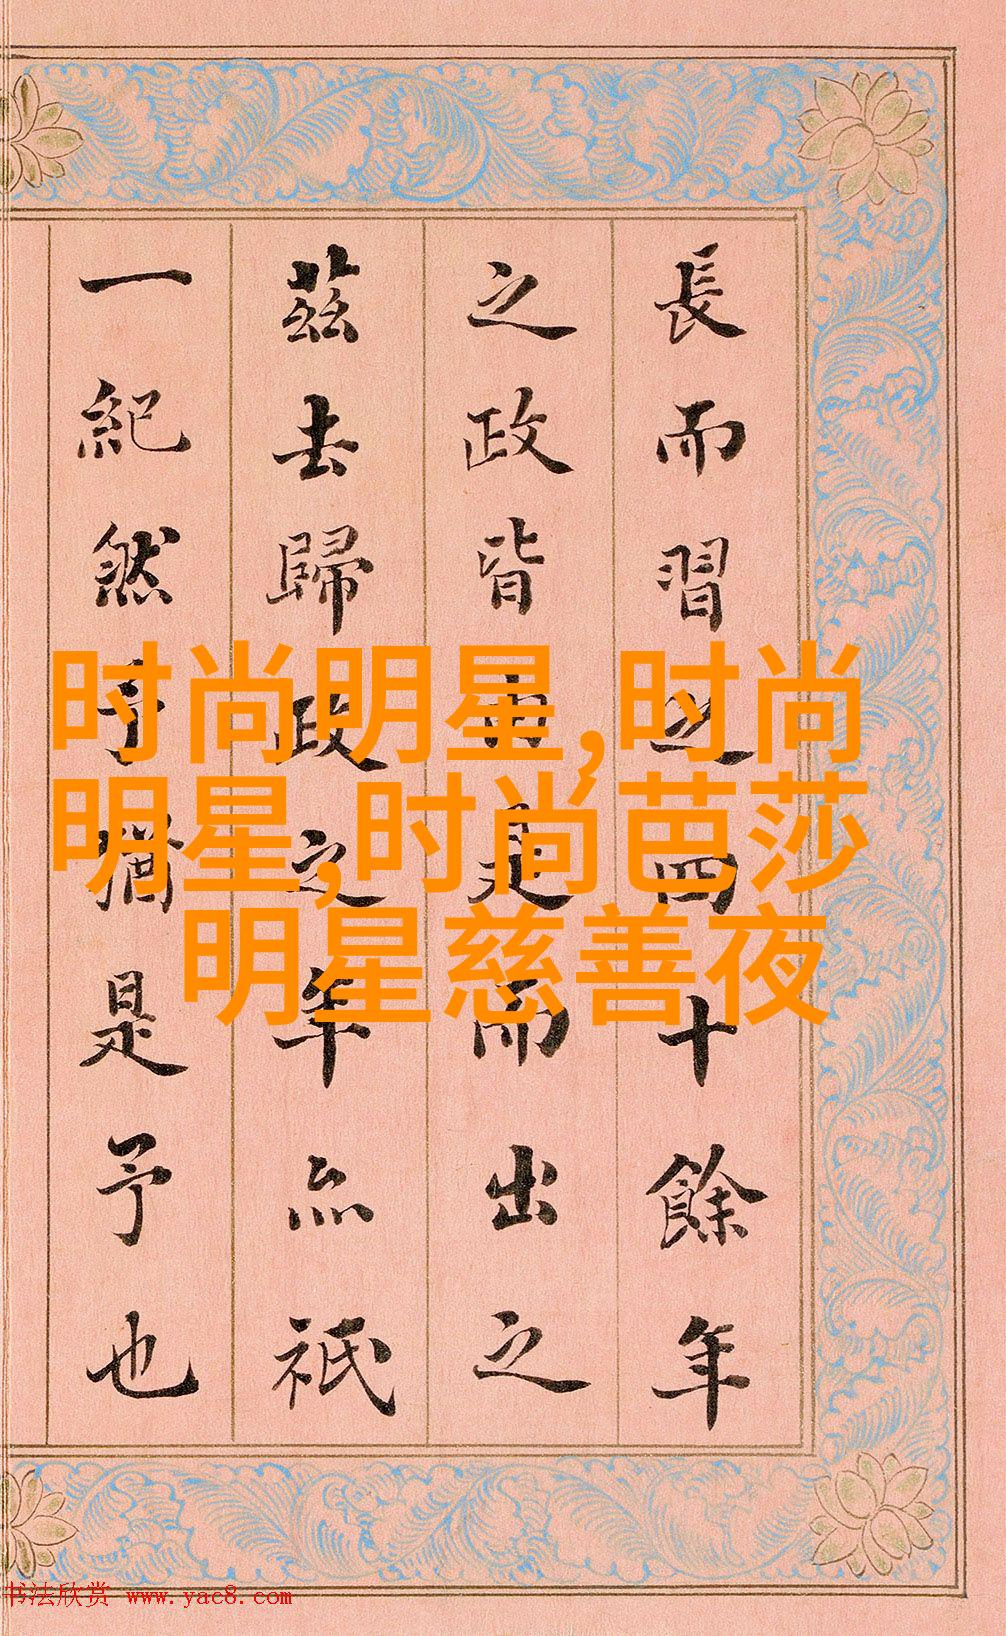 長而習之四十餘年
之政皆由是而出之
茲去歸政之年亦祇
一紀然予猶是予也
时尚明星,时尚
明星,时尚芭莎
明星慈善夜
书法欣赏 www.yac8.com